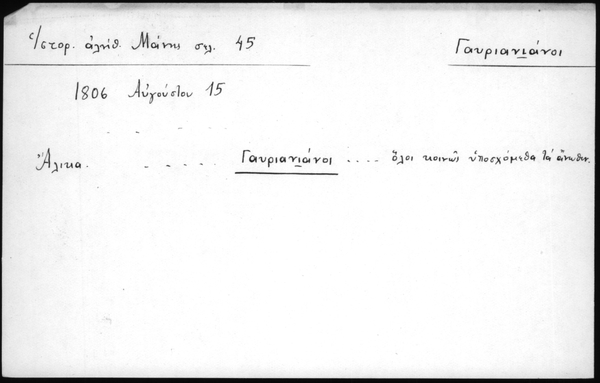 Ἱστορ. ἀλήθ. Μάνης σελ. 45
Γαυριανιάνοι
1806 Αὐγούστου 15
Ἄλικα. . . . . . Γαυριανιάνοι . . . . ὅλοι κοινῶς ὑποσχόμεθα τά ἄνωθεν.